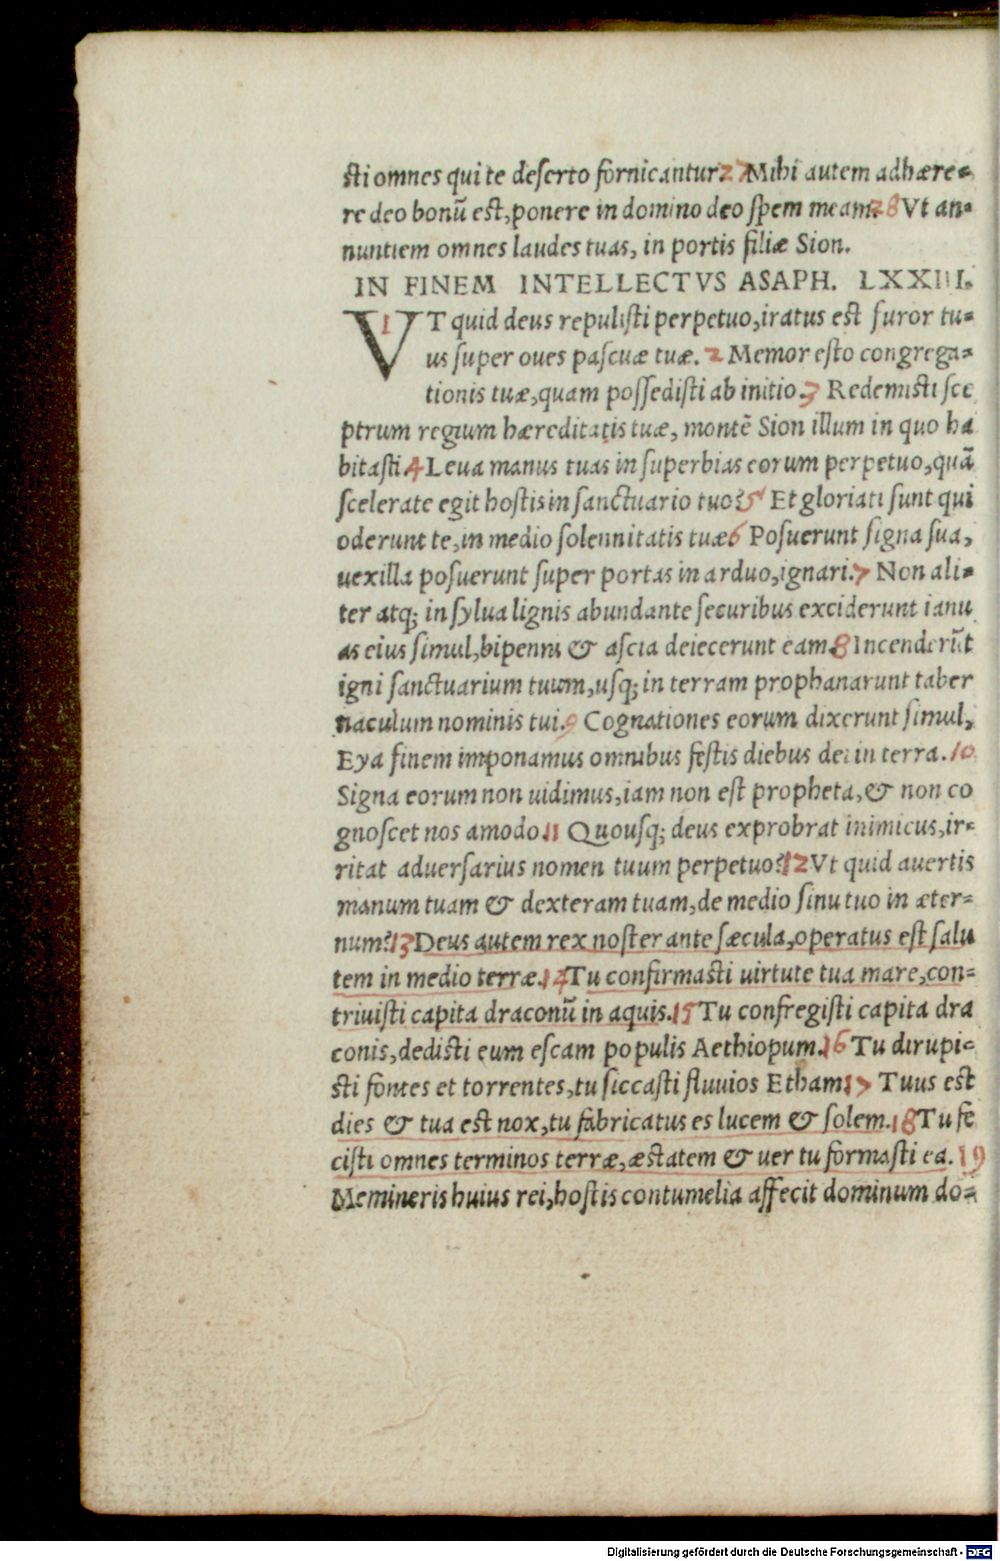 sti omnes qui te deserto fornicantur. 27 Mihi autem adhære-
re deo bonū est, ponere in domino deo spem meam. 28 Vt an-
nuntiem omnes laudes tuas, in portis filiæ Sion.
IN FINEM INTELLECTVS ASAPH. LXXIII.
1 VT quid deus repulisti perpetuo, iratus est furor tu-
us super oues pascuæ tuæ. 2 Memor esto congrega-
tionis tuæ, quam possedisti ab initio. 3 Redemisti sce
ptrum regium hæreditatis tuæ, montē Sion illum in quo ha
bitasti 4 Leua manus tuas in superbias eorum perpetuo, quā
scelerate egit hostis in sanctuario tuo? 5 Et gloriati sunt qui
oderunt te, in medio solennitatis tuæ 6 Posuerunt signa sua,
uexilla posuerunt super portas in arduo, ignari. 7 Non ali-
ter atq; in sylua lignis abundante securibus exciderunt ianu
as eius simul, bipenni & ascia deiecerunt eam. 8 Incenderūt
igni sanctuarium tuum, usq; in terram prophanarunt taber
naculum nominis tui. 9 Cognationes eorum dixerunt simul,
Eya finem imponamus omnibus festis diebus dei in terra. 10
Signa eorum non uidimus, iam non est propheta, & non co
gnoscet nos amodo. 11 Quousq; deus exprobrat inimicus, ir-
ritat aduersarius nomen tuum perpetuo? 12 Vt quid auertis
manum tuam & dexteram tuam, de medio sinu tuo in æter-
num? 13 Deus autem rex noster ante sæcula, operatus est salu
tem in medio terræ. 14 Tu confirmasti uirtute tua mare, con-
triuisti capita draconū in aquis. 15 Tu confregisti capita dra
conis, dedisti eum escam populis Aethiopum. 16 Tu dirupi-
sti fontes et torrentes, tu siccasti fluuios Etham 17 Tuus est
dies & tua est nox, tu fabricatus es lucem & solem. 18 Tu fe
cisti omnes terminos terræ, æstatem & uer tu formasti ea. 19
Memineris huius rei, hostis contumelia affecit dominum do-
Digitalisierung gefördert durch die Deutsche Forschungsgemeinschaft - DFG